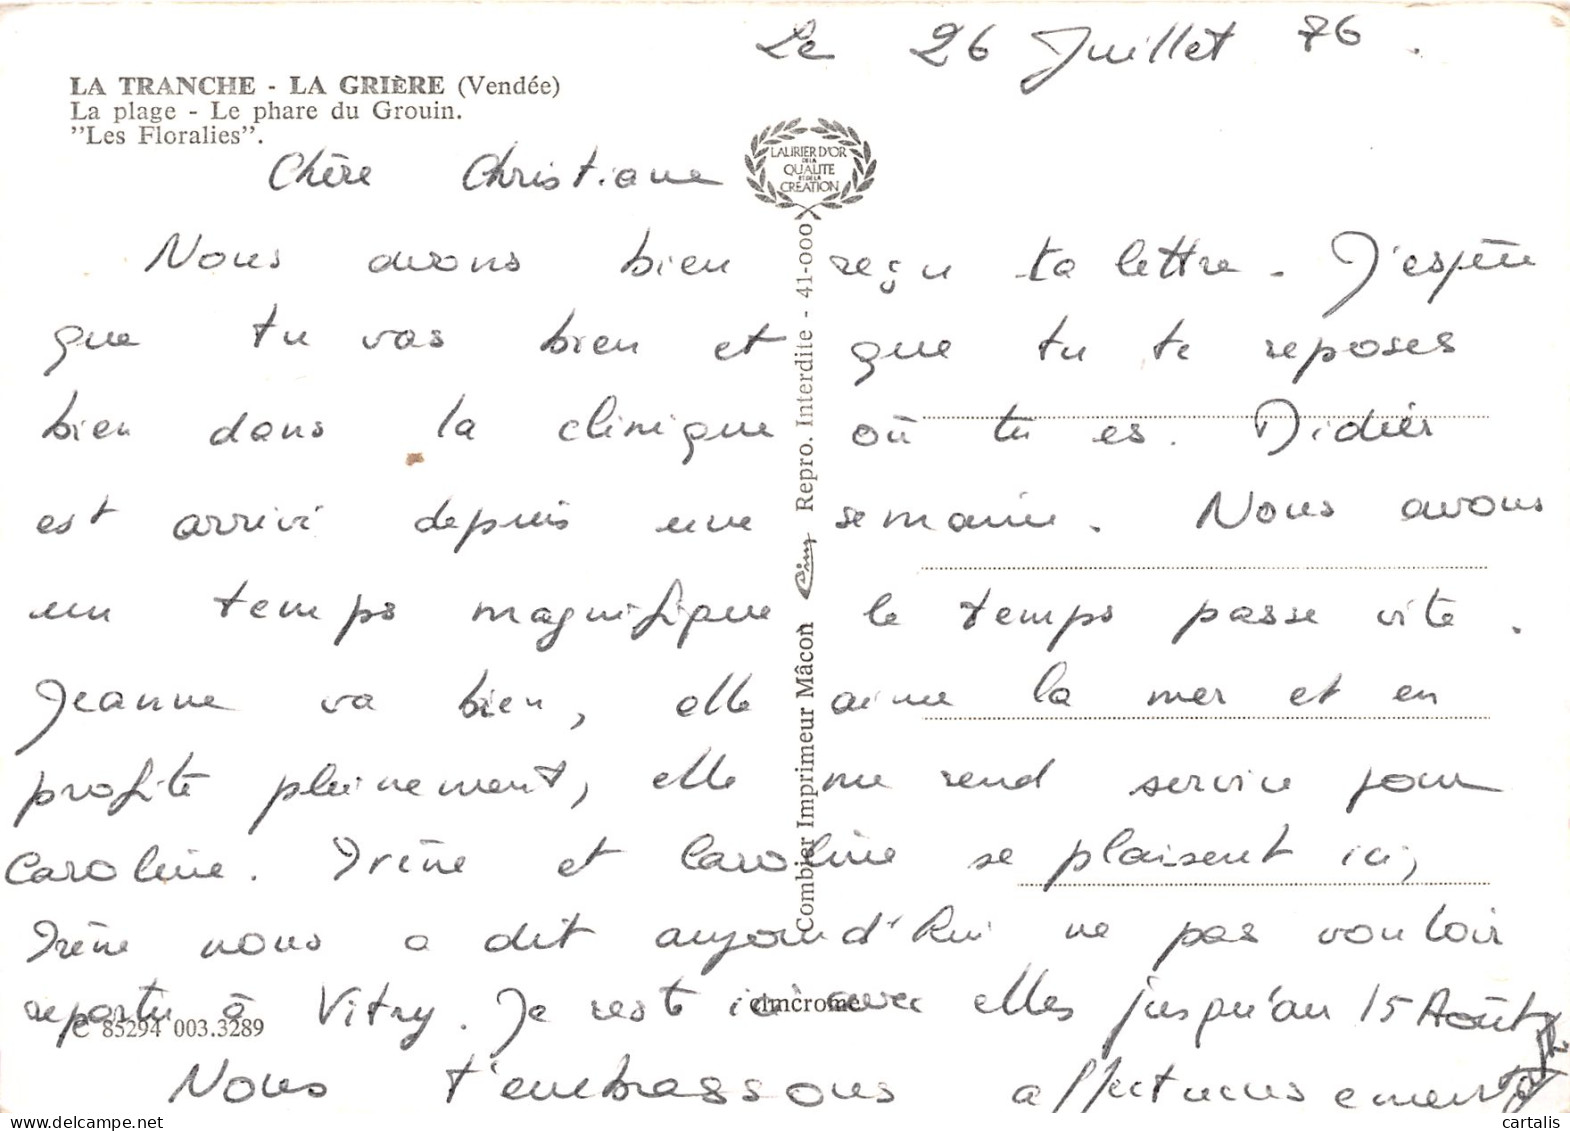 Le 26 Juillet 76.
LA TRANCHE - LA GRIÈRE (Vendée)
La plage - Le phare du Grouin.
"Les Floralies".
LAURIER D'OR
DE LA
QUALITE
ET DE LA
CREATION
Chère Christiane
Nous avons bien reçu ta lettre. J'espère
que tu vas bien et que tu te reposes
bien dans la clinique où tu es. Didier
est arrivé depuis une semaine. Nous avons
un temps magnifique le temps passe vite.
Jeanne va bien, elle aime la mer et en
profite pleinement, elle me rend service pour
Caroline. Irène et Caroline se plaisent ici,
Irène nous a dit aujourd'hui ne pas vouloir
repartir à Vitry. Je reste ici avec elles jusqu'au 15 Août
Nous t'embrassons affectueusement
Combier Imprimeur Mâcon Cim Repro. Interdite - 41-000
cimcrome
C 85294 003.3289
cartalis
www.delcampe.net